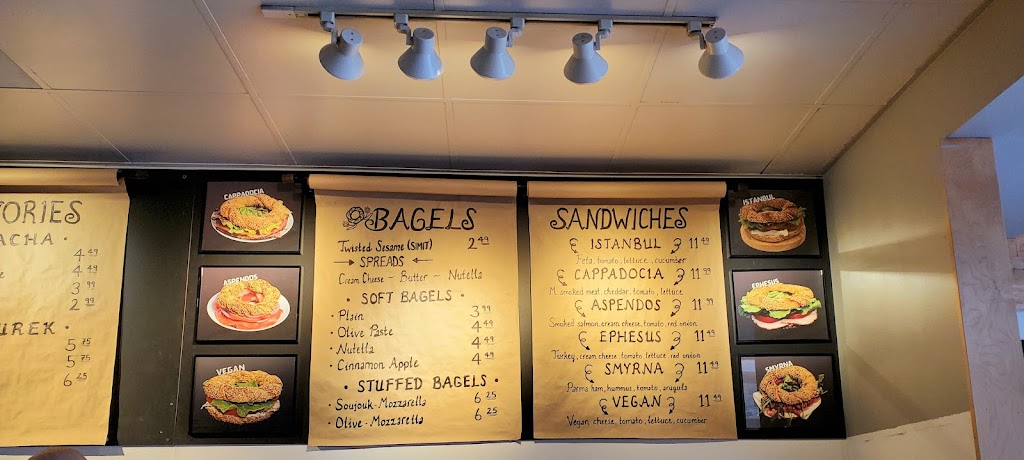 ORIES
ACHA •
4 49
4 49
3 99
2 99
UREK •
5 75
5 75
6 25
CAPPADOCIA
ASPENDOS
VEGAN
BAGELS
Twisted Sesame (SIMIT) 2 49
SPREADS
Cream Cheese - Butter - Nutella
• SOFT BAGELS •
• Plain 3 99
• Olive Paste 4 49
• Nutella 4 49
• Cinnamon Apple 4 49
• STUFFED BAGELS •
• Soujouk-Mozzarella 6 25
• Olive-Mozzarella 6 25
SANDWICHES
ISTANBUL 11 49
Feta, tomato, lettuce, cucumber
CAPPADOCIA 11 99
M. smoked meat, cheddar, tomato, lettuce
ASPENDOS 11 99
Smoked salmon, cream cheese, tomato, red onion
EPHESUS 11 49
Turkey, cream cheese, tomato, lettuce, red onion
SMYRNA 11 49
Parma ham, hummus, tomato, arugula
VEGAN 11 49
Vegan cheese, tomato, lettuce, cucumber
ISTANBUL
EPHESUS
SMYRNA